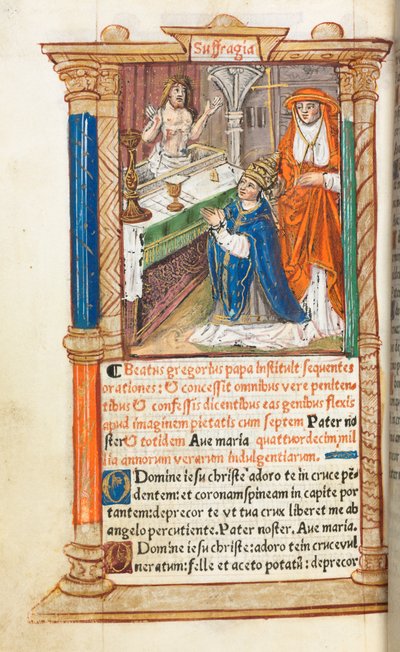 Suffragia
Beatus gregorius papa instituit sequentes
orationes: & concessit omnibus vere peniten-
tibus & confessis dicentibus eas genibus flexis
apud imaginem pietatis cum septem Pater no
ster & totidem Ave maria quattuordecim mil
lia annorum verarum indulgentiarum.
O Domine iesu christe adoro te in cruce pē
dentem: et coronam spineam in capite por
tantem: deprecor te vt tua crux liberet me ab
angelo percutiente. Pater noster. Ave maria.
O Domine iesu christe: adoro te in cruce vul
neratum: felle et aceto potatū: deprecor